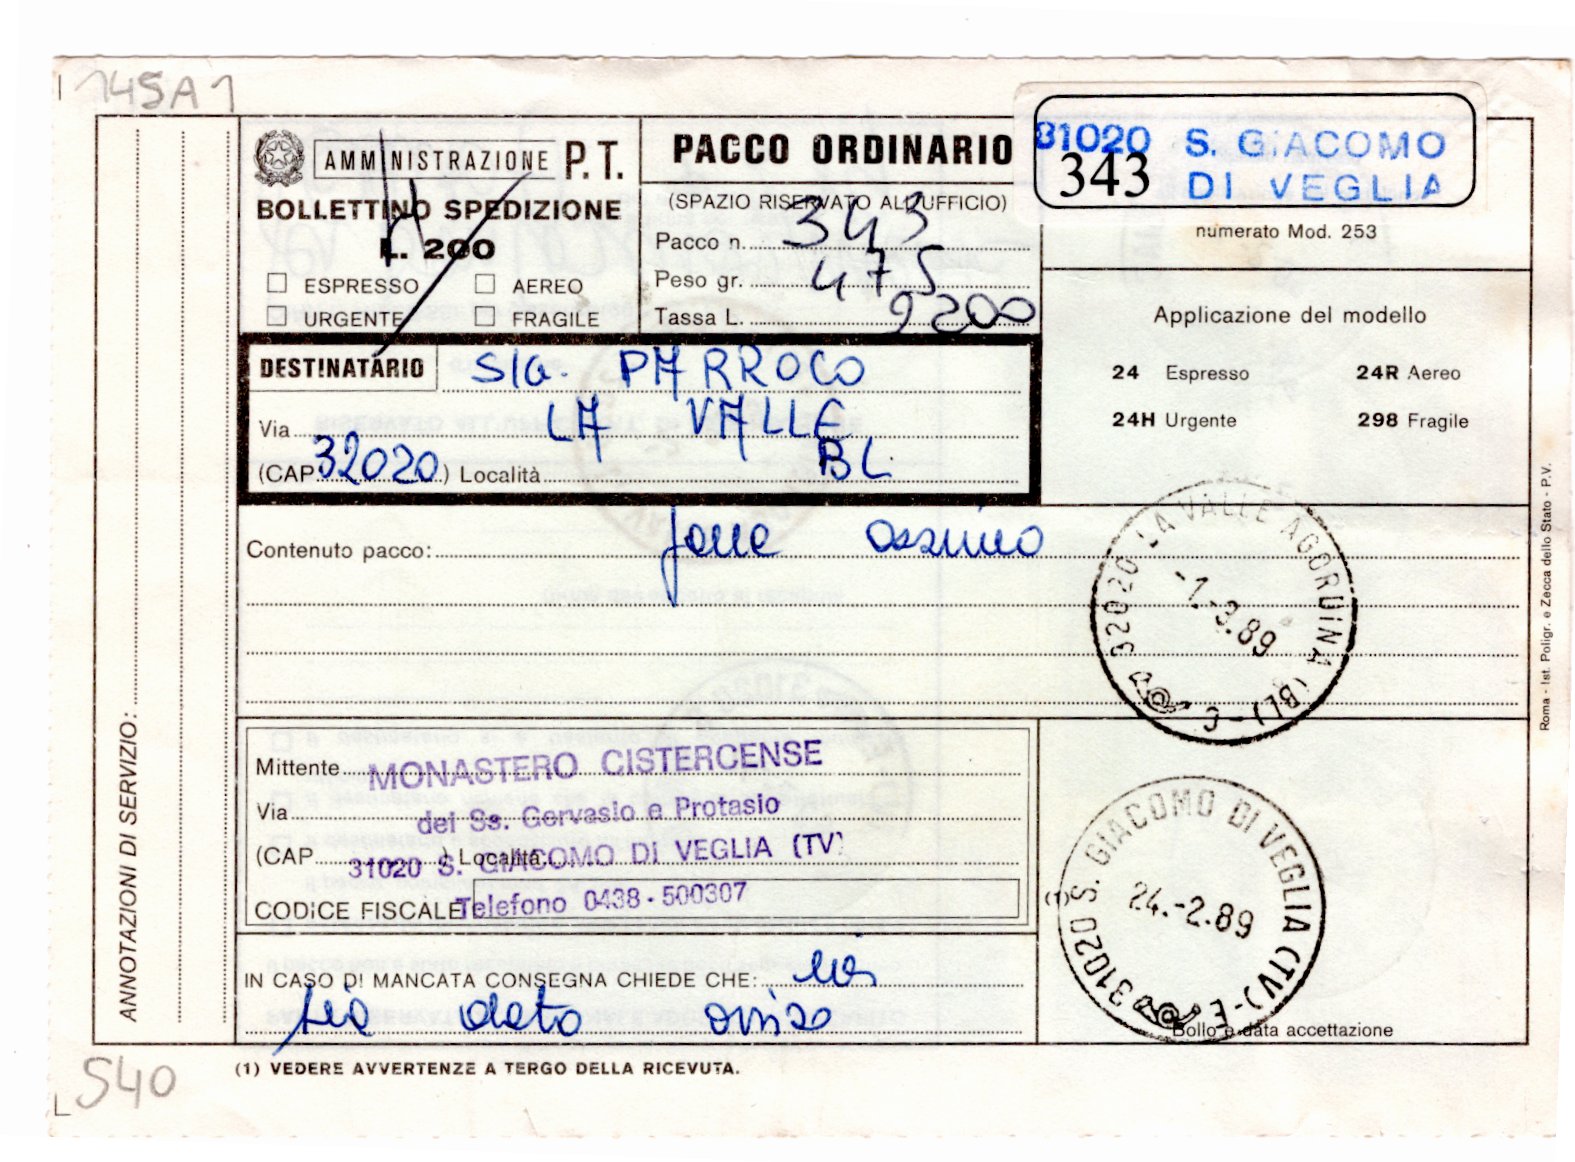 145A1
AMMINISTRAZIONE P.T.
BOLLETTINO SPEDIZIONE
L. 200
ESPRESSO AEREO
URGENTE FRAGILE
PACCO ORDINARIO
(SPAZIO RISERVATO ALL'UFFICIO)
Pacco n. 343
Peso gr. 475
Tassa L. 9200
81020 S. GIACOMO
343 DI VEGLIA
numerato Mod. 253
Applicazione del modello
24 Espresso 24R Aereo
24H Urgente 298 Fragile
DESTINATARIO SIG. PARROCO
Via LA VALLE
(CAP 32020) Località BL
Contenuto pacco:
32020 LA VALLE AGORDINA (BL) - C
-1.-3.89
Mittente MONASTERO CISTERCENSE
Via dei Ss. Gervasio e Protasio
(CAP ) Località 31020 S. GIACOMO DI VEGLIA (TV)
CODICE FISCALE Telefono 0438-500307
(1)
31020 S. GIACOMO DI VEGLIA (TV) - E
24.-2.89
Bollo e data accettazione
IN CASO DI MANCATA CONSEGNA CHIEDE CHE: mi
sia dato avviso
(1) VEDERE AVVERTENZE A TERGO DELLA RICEVUTA.
ANNOTAZIONI DI SERVIZIO:
Roma - Ist. Poligr. e Zecca dello Stato - P.V.
S40